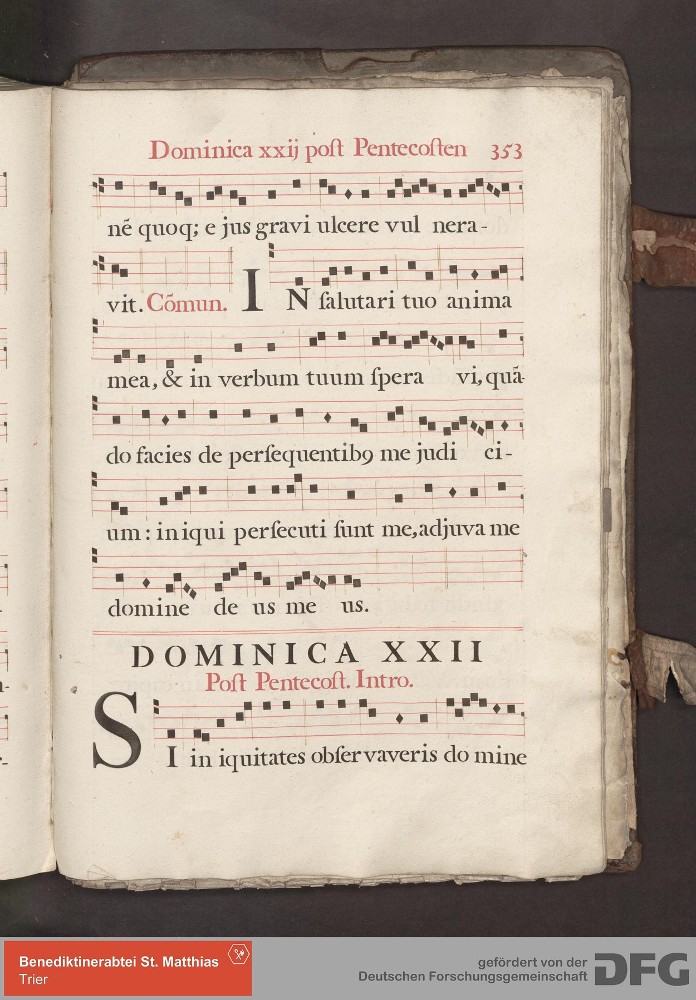 Dominica xxij poſt Pentecoſten 353
né quoq; e jus gravi ulcere vul nera-
vit. Cõmun. IN ſalutari tuo anima
mea, & in verbum tuum ſpera vi, quã-
do facies de perſequentibꝯ me judi ci-
um: in iqui perſecuti ſunt me, adjuva me
domine de us me us.
DOMINICA XXII
Poſt Pentecoſt. Intro.
SI in iquitates obſer vaveris do mine
Benediktinerabtei St. Matthias
Trier
gefördert von der
Deutschen Forschungsgemeinschaft
DFG